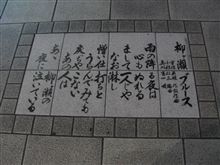 柳ヶ瀬ブルース
雨の降る夜は
心もぬれる
まして一人じゃ
なお淋し
憎い仕打ちと
うらんでみても
戻っちゃこない
あの人は
ああ 柳ヶ瀬の
夜に泣いている